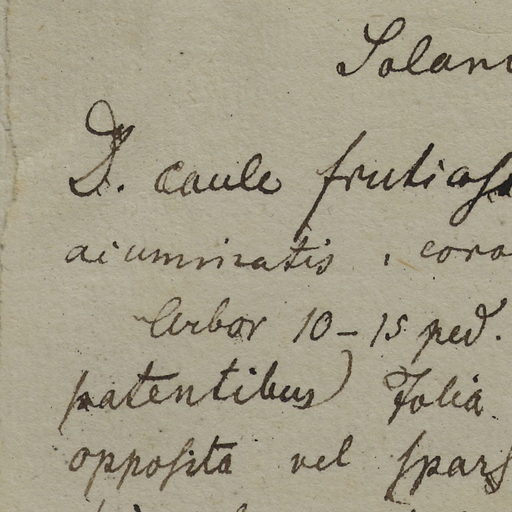 Solan
D. caule frutios
aiuminatis, coro
Arbor 10–15 ped.
patentibus) Folia
opposita vel spars